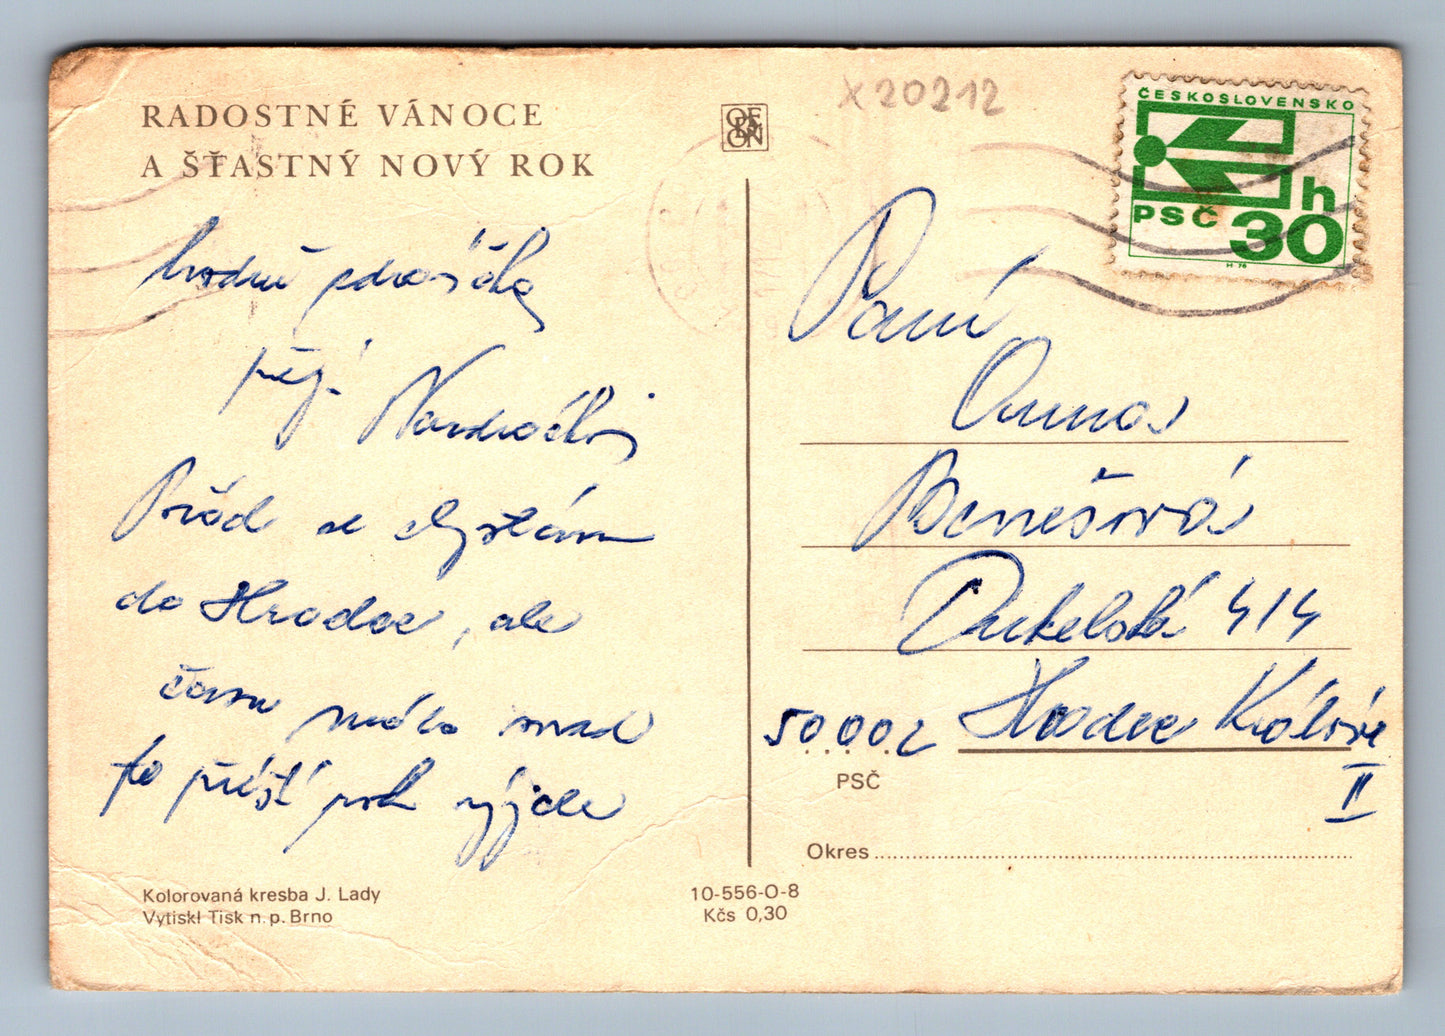 RADOSTNÉ VÁNOCE
A ŠŤASTNÝ NOVÝ ROK
hodně zdravíčka
přejí
Pořád se chystám
do Hradce, ale
času málo snad
to příští rok vyjde
Kolorovaná kresba J. Lady
Vytiskl Tisk n. p. Brno
ODEON
10-556-O-8
Kčs 0,30
X20212
ČESKOSLOVENSKO
PSČ 30 h
Paní
Anna
Benešová
Dukelská 414
50002 Hradec Králové
II
PSČ
Okres